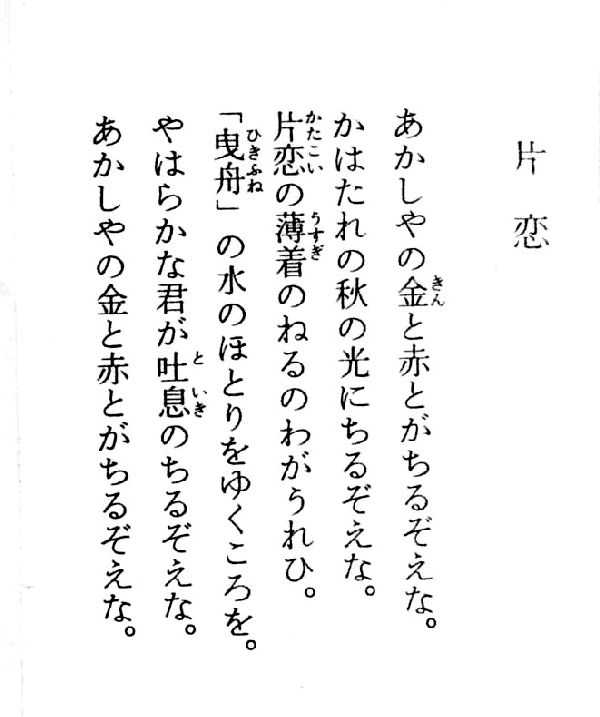 片恋
あかしやの金と赤とがちるぞえな。
かはたれの秋の光にちるぞえな。
片恋の薄着のねるのわがうれひ。
「曳舟」の水のほとりをゆくころを。
やはらかな君が吐息のちるぞえな。
あかしやの金と赤とがちるぞえな。